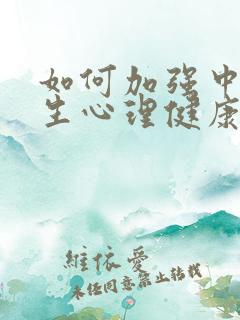 如何加强中
生心理健康
维依爱
未经同意禁止转载